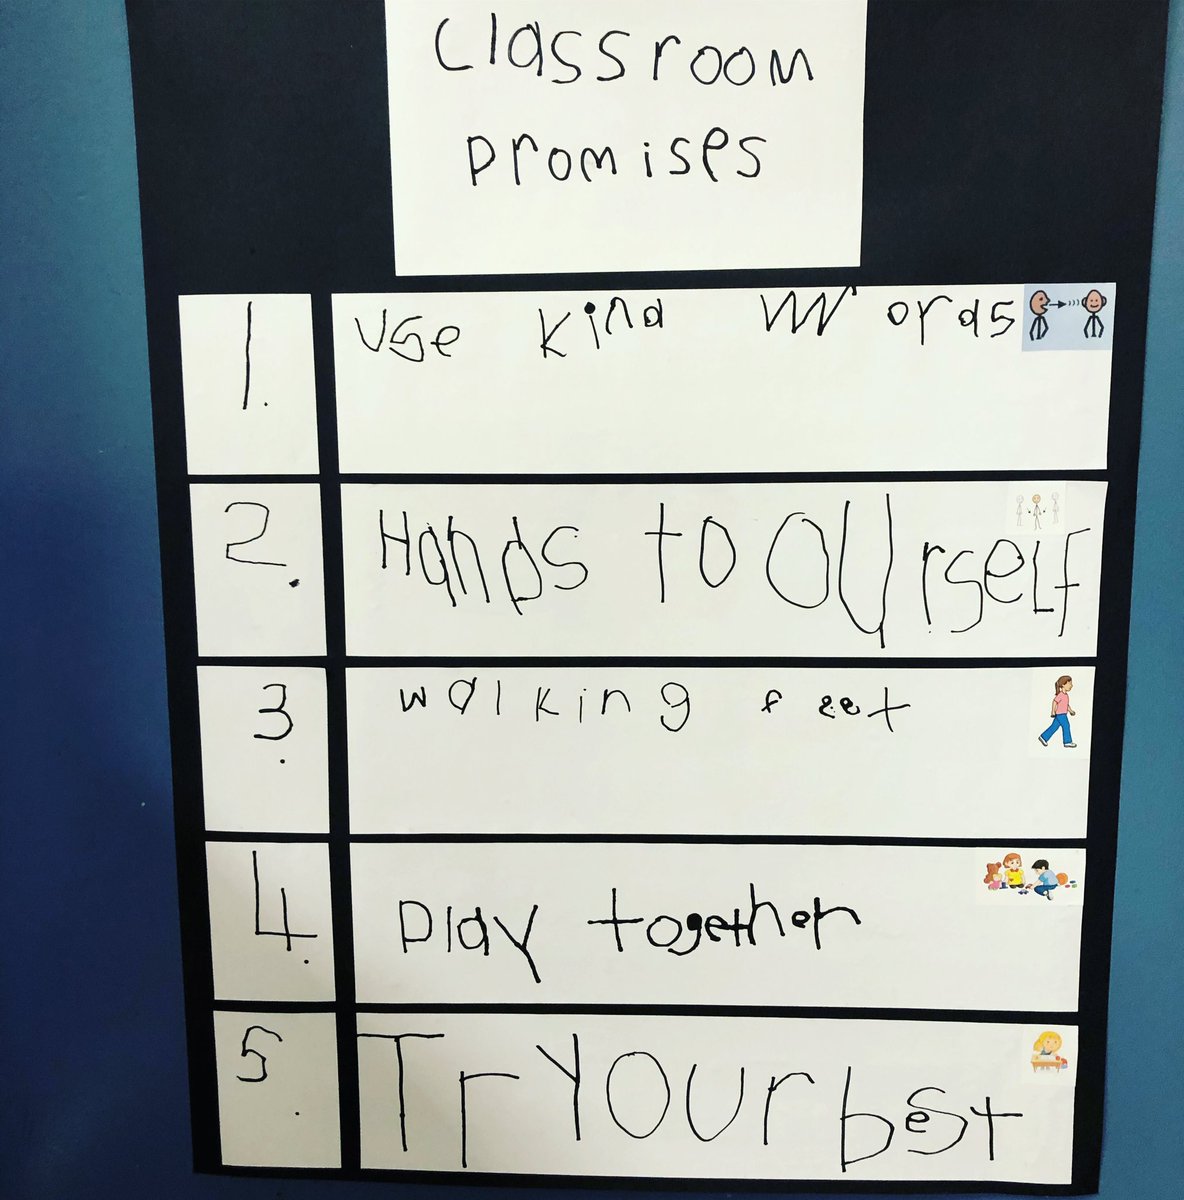 Classroom
promises
1. Use kind words
2. Hands to OUrself
3. walking feet
4. play together
5. TrYOUr best